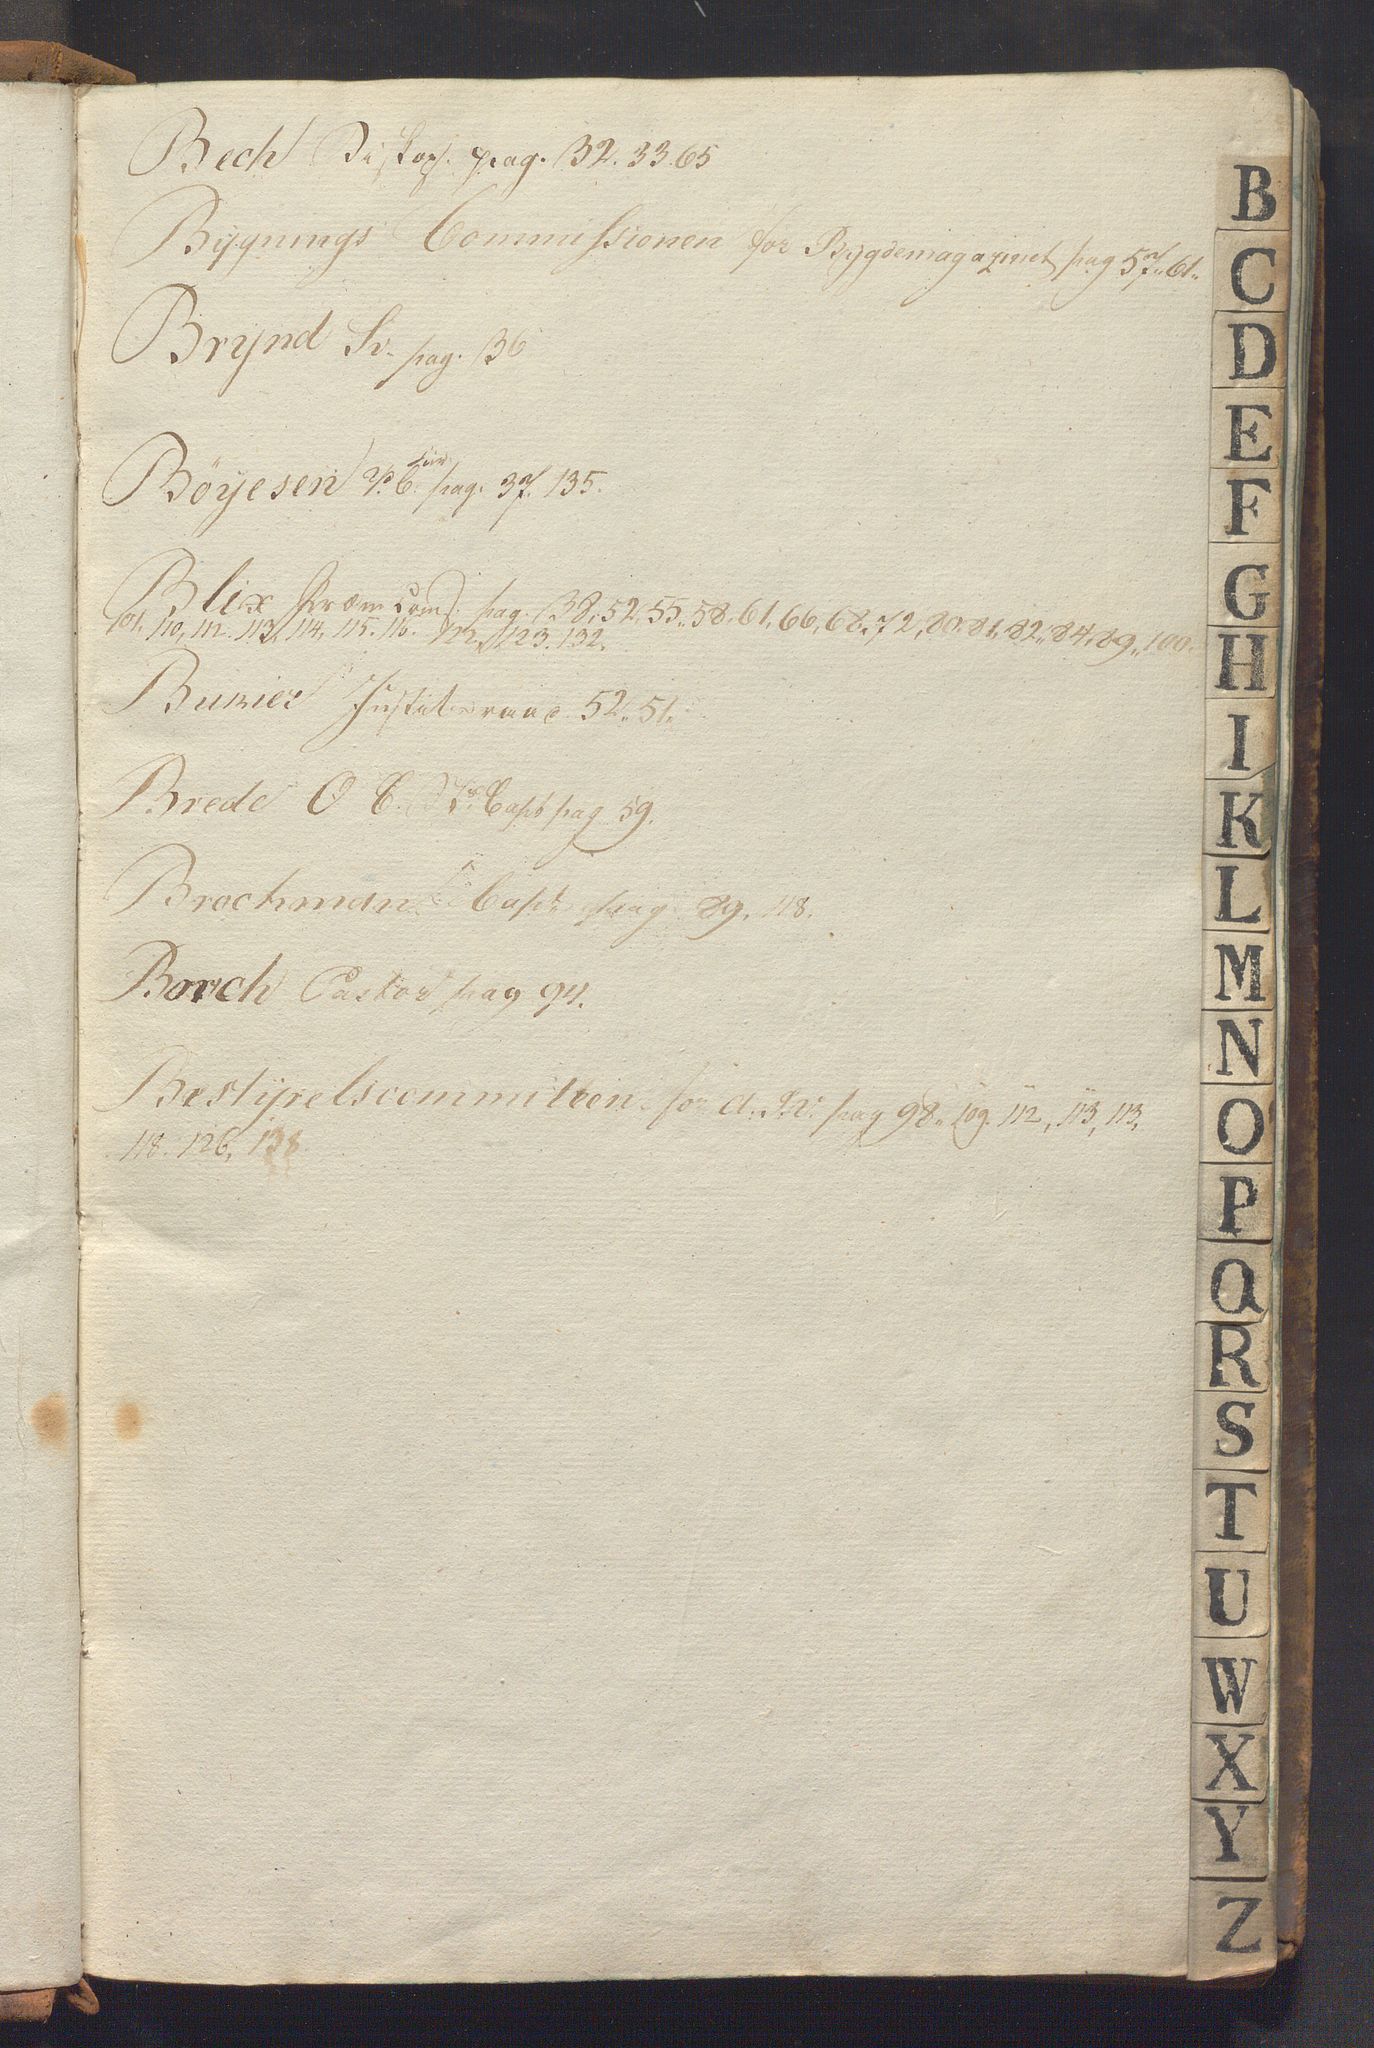 Bech Biskop. pag. 32. 33. 65
Bygnings Commissionen for Bygdemagazinet pag 57.. 61..
Brynd Sv. pag. 36
Böyesen pag. 37. 135.
Blix pag. 38, 52, 55, 58, 61, 66, 68, 72, 80, 81, 82, 84, 89, 100.
101. 110, 112. 113, 114, 115. 116. 122, 123. 132.
Justitsraad 52.. 51..
Brede O C. Capt pag 59.
Brochman Capt pag 89, 118.
Borch Pastor pag 94.
Bestyrelscommitteen for pag 98.. 109. 112, 113, 113,
118. 126, 138
B
C
D
E
F
G
H
I
K
L
M
N
O
P
Q
R
S
T
U
W
X
Y
Z